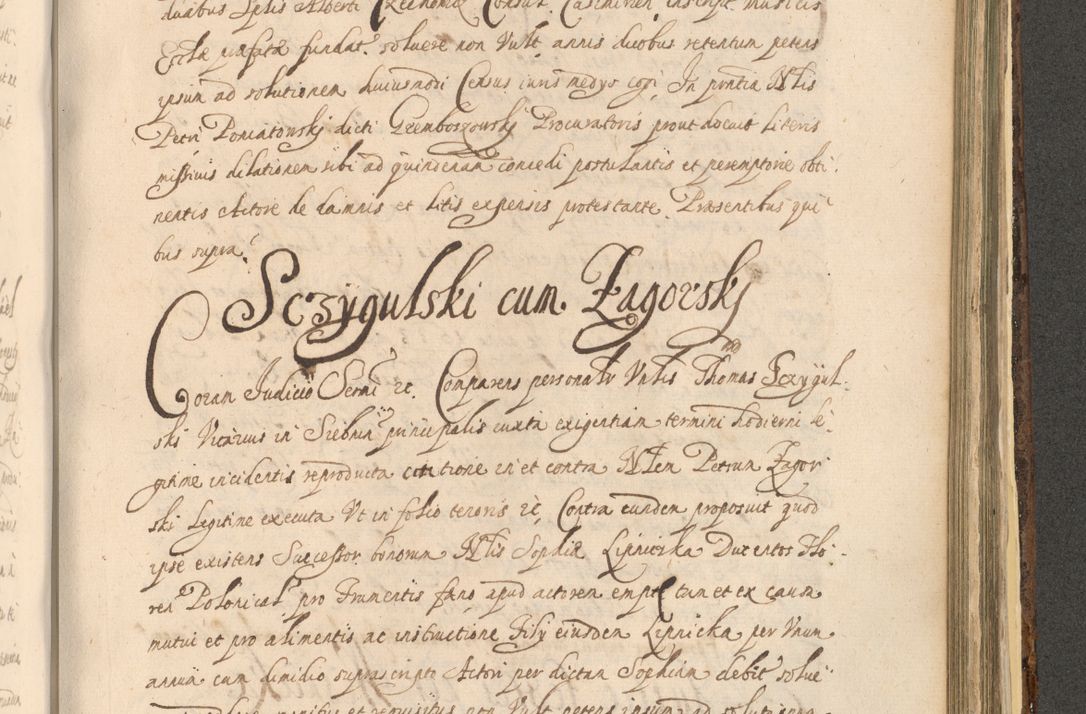 duabus Sptis Alberti Consul. Casimirien inscript
Ecclæ præfatæ fundat. soluere non Vult annis duobus retentum petens
ipsum ad solutionem huiusmodi Census iuris medys cogi, In pñtia Nlis
Petri Poniatowskj dicti Grzemboszowskj Procuratoris prout docuit Literis
missiuis dilationem sibi ad quindenam concedi postulantis et peremptorie obti-
nentis Actore de damnis et litis expensis protestante. Præsentibus qui
bus supra.
Sczygulski cum Zagorskj
Coram Judicio &c. Comparens personalr Vnlis Thomas Sczygul-
ski Vicarius in principalis iuxta exigentiam termini hodierni le
gitime incidentis reproducta citatione in et contra Nlem Petrum Zagor
ski Legitime executa Vt in folio tenoris &c. Contra eundem proposuit quod
ipse existens Successor bonorum Nlis Sophiæ Lipniczka Ducentos Flo-
ren Polonical pro Frumentis fæno apud actorem emptetum et ex causa
mutui et pro alimentis ac instructione Filij eiusdem Lipnicka per Vnum
annum cum dimidio suprascripto Actori per dictam Sophiam debit solue
requisitus non Vult petens ipsum ad solutionem